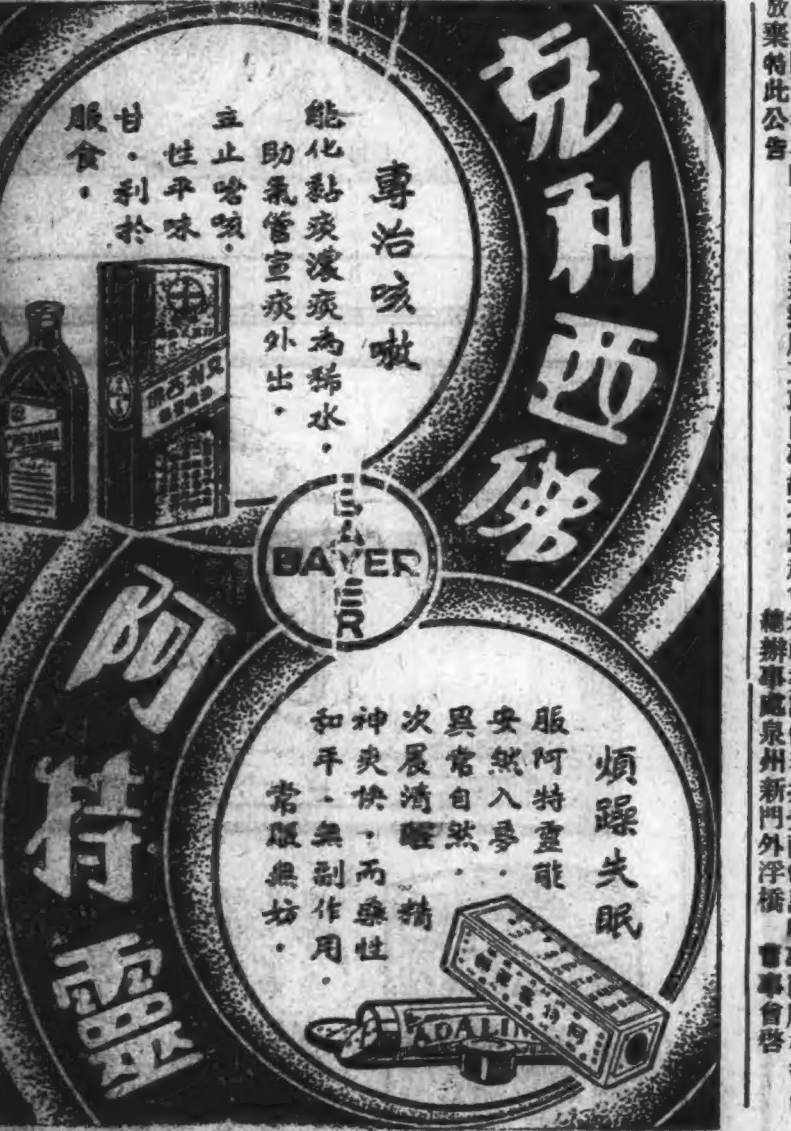 克利西佛
專治咳嗽
能化黏痰濃痰為稀水，
助氣管宣痰外出。
立止嗆咳。
性平味
甘。利於
服食。
BAYER
BAYER
阿特靈
煩躁失眠
服阿特靈能
安然入夢。
異常自然。
次晨清醒 精
神爽快。而藥性
和平。無副作用。
常服無妨。
ADALIN
放棄特此公告
總辦事處泉州新門外浮橋 董事會啓